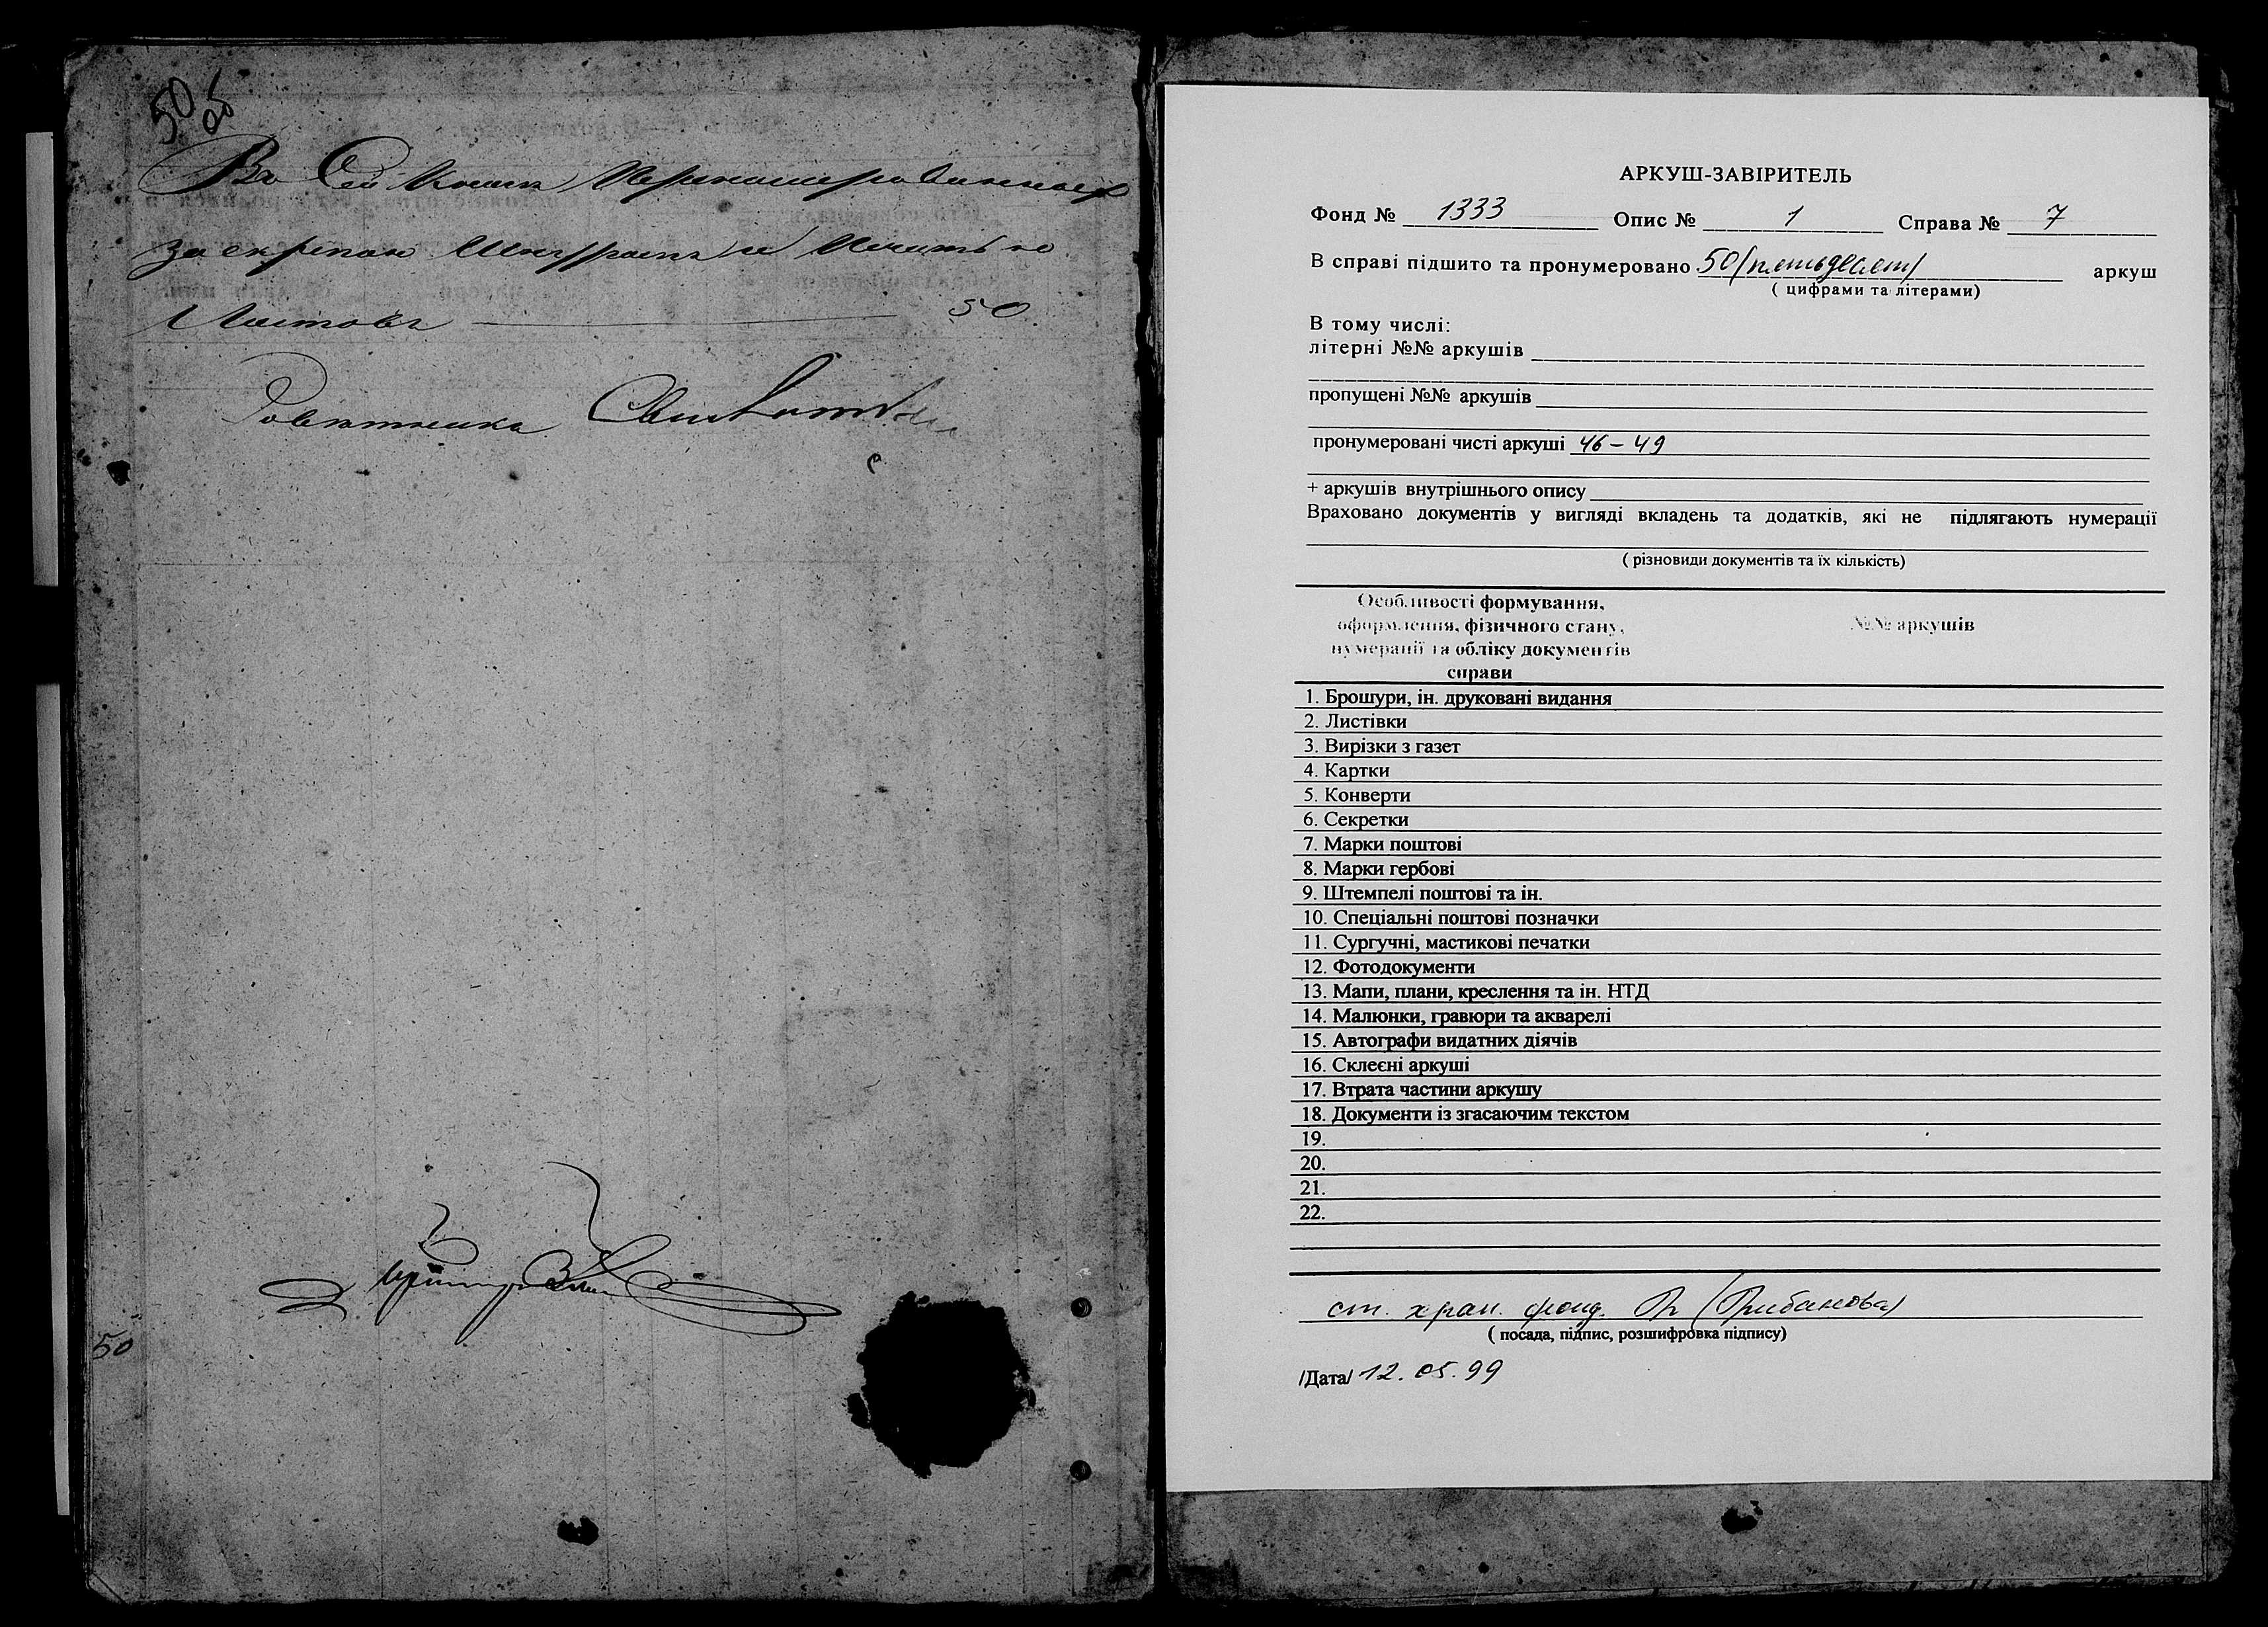 50 об
Въ Сей Книге Перенумерованныхъ
за скрепою Шнурами и Печатью
Листовъ — 50.
Ратмана
50
АРКУШ-ЗАВІРИТЕЛЬ
Фонд № 1333 Опис № 1 Справа № 7
В справі підшито та пронумеровано 50/пятьдесят/ аркуш
( цифрами та літерами)
В тому числі:
літерні №№ аркушів
пропущені №№ аркушів
пронумеровані чисті аркуші 46 – 49
+ аркушів внутрішнього опису
Враховано документів у вигляді вкладень та додатків, які не підлягають нумерації
( різновиди документів та їх кількість)
Особливості формування,
оформлення, фізичного стану, №№ аркушів
нумерації та обліку документів
справи
1. Брошури, ін. друковані видання
2. Листівки
3. Вирізки з газет
4. Картки
5. Конверти
6. Секретки
7. Марки поштові
8. Марки гербові
9. Штемпелі поштові та ін.
10. Спеціальні поштові позначки
11. Сургучні, мастикові печатки
12. Фотодокументи
13. Мапи, плани, креслення та ін. НТД
14. Малюнки, гравюри та акварелі
15. Автографи видатних діячів
16. Склеєні аркуші
17. Втрата частини аркушу
18. Документи із згасаючим текстом
19.
20.
21.
22.
ст. хран. фонд. (Грибанова)
( посада, підпис, розшифровка підпису)
/Дата/ 12. 05. 99